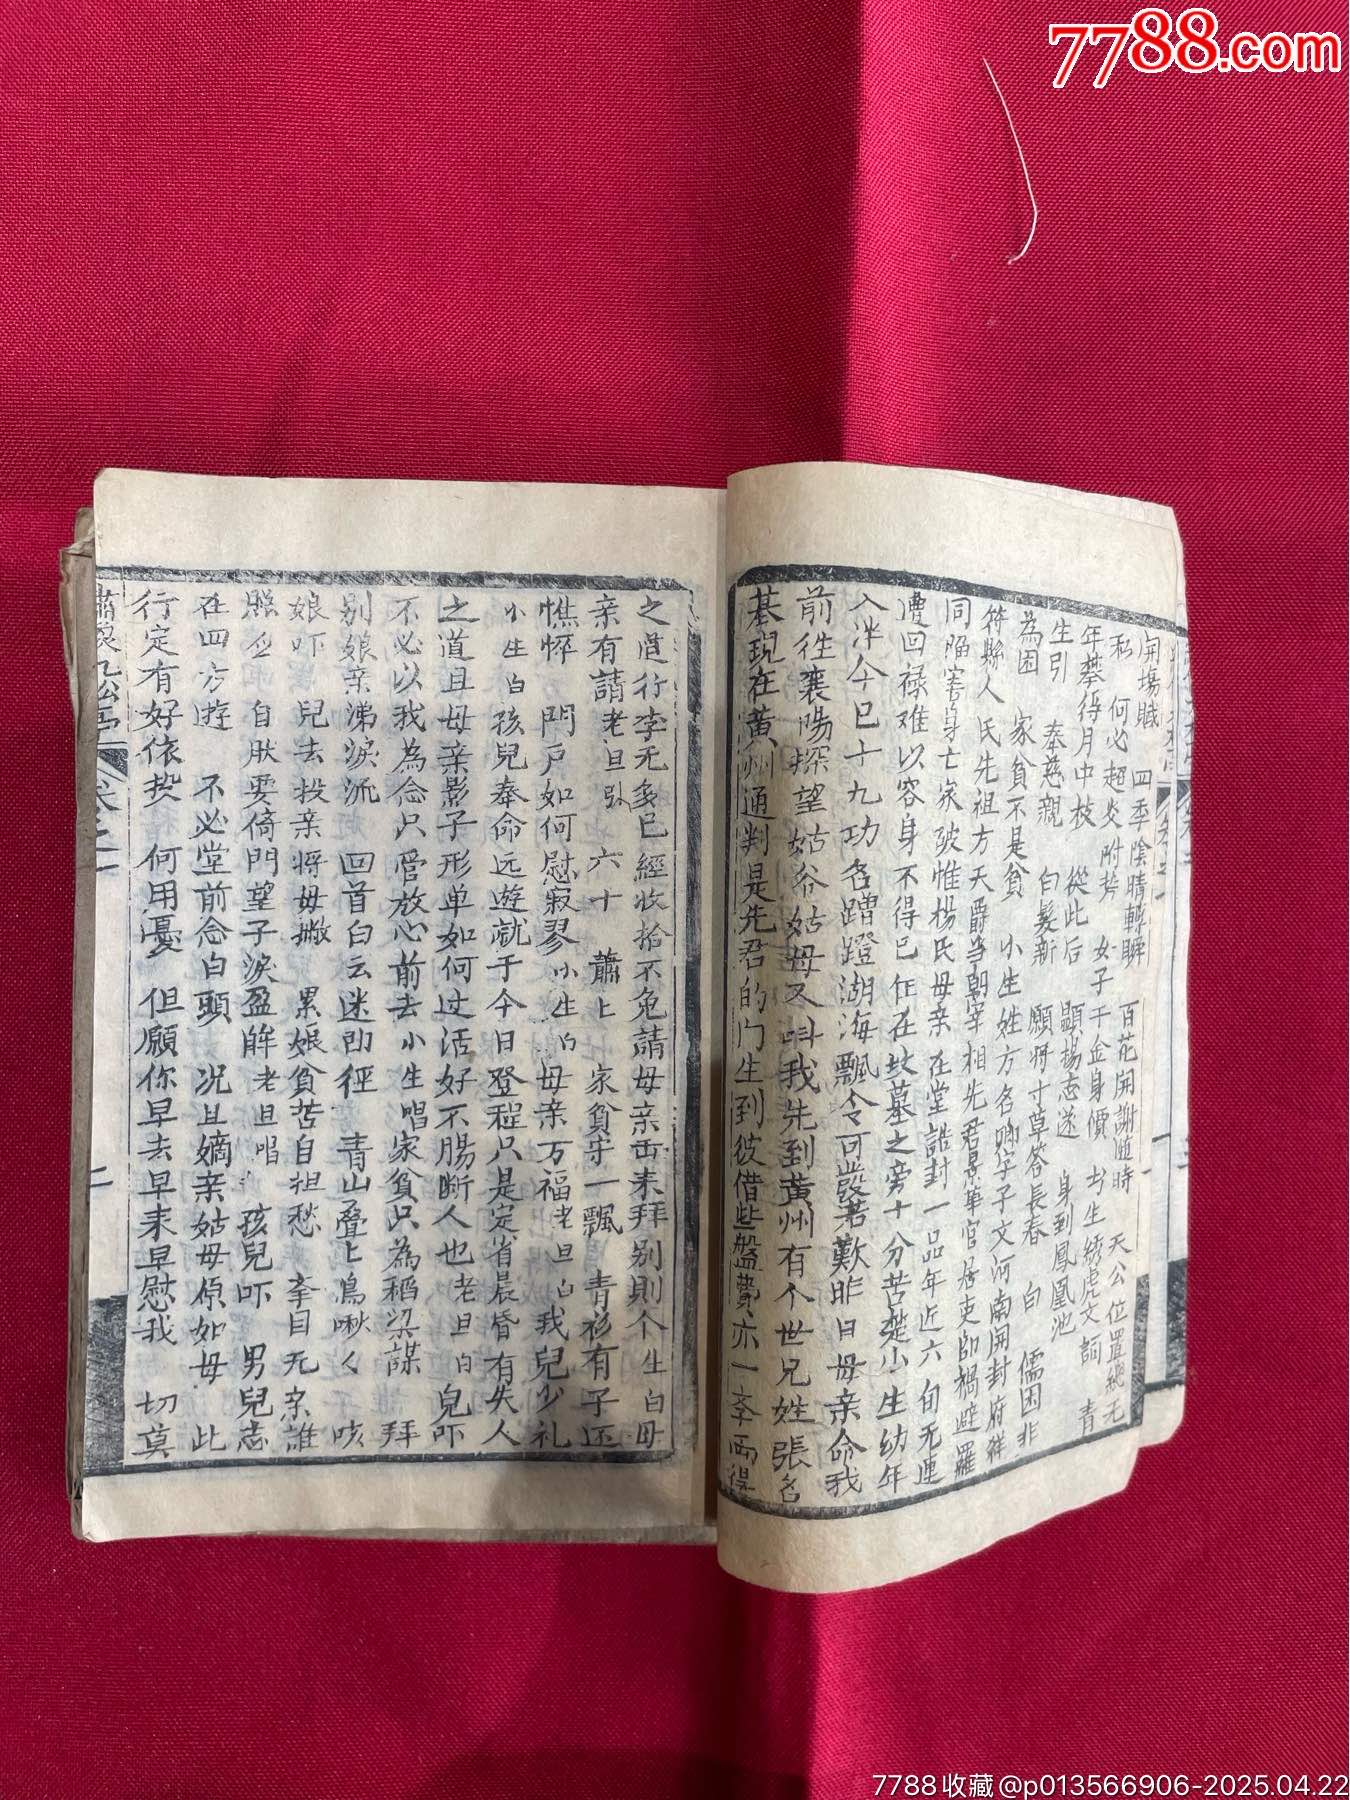 7788.com
開場賦 四季陰晴轉瞬 百花開謝隨時 天公位置總无
私 何必超炎附势 女子千金身價 书生綉虎文詞 青
年攀得月中枝 從此后 顯揚志遂 身到鳳凰池
生引 奉慈親 白髮新 願將寸草答長春 白 儒困非
為困 家貧不是貧 小生姓方名卿字子文河南開封府祥
符縣人氏先祖方天爵当朝宰相先君景華官居吏部禍避羅
同陷害身亡家破惟楊氏母亲在堂誥封一品年近六旬无連
遭回禄难以容身不得已住在坟墓之旁十分苦楚小生幼年
入泮今已十九功名蹭蹬湖海飄令可發若歎昨日母亲命我
前往襄陽探望姑爷姑母又叫我先到黄州有个世兄姓張名
基現在黄州通判是先君的门生到彼借些盤費亦一
之道行李无多已經收拾不免請母亲出来拜别則个生白母
亲有請老旦引 六十 蕭上 家貧守一瓢 青衫有子还
憔悴 門戸如何慰寂寥小生白母亲万福老旦白我兒少礼
小生白孩兒奉命远遊就于今日登程只是定省晨昏有失人
之道且母亲影子形单如何过活好不腸断人也老旦白兒吓
不必以我為念只管放心前去小生唱家貧只為稻粱謀 拜
别娘亲涕淚流 回首白云迷卽徑 青山叠上鳥啾々 咳
娘吓 兒去投亲將母撇 累娘貧苦自担愁 举目无亲誰
照应 自朕要倚門望子淚盈眸老旦唱 孩兒吓 男兒志
在四方遊 不必堂前念白頭 况且嫡亲姑母原如母 此
行定有好依投 何用憂 但願你早去早来早慰我 切莫
卷之一 二
7788收藏@p013566906-2025.04.22